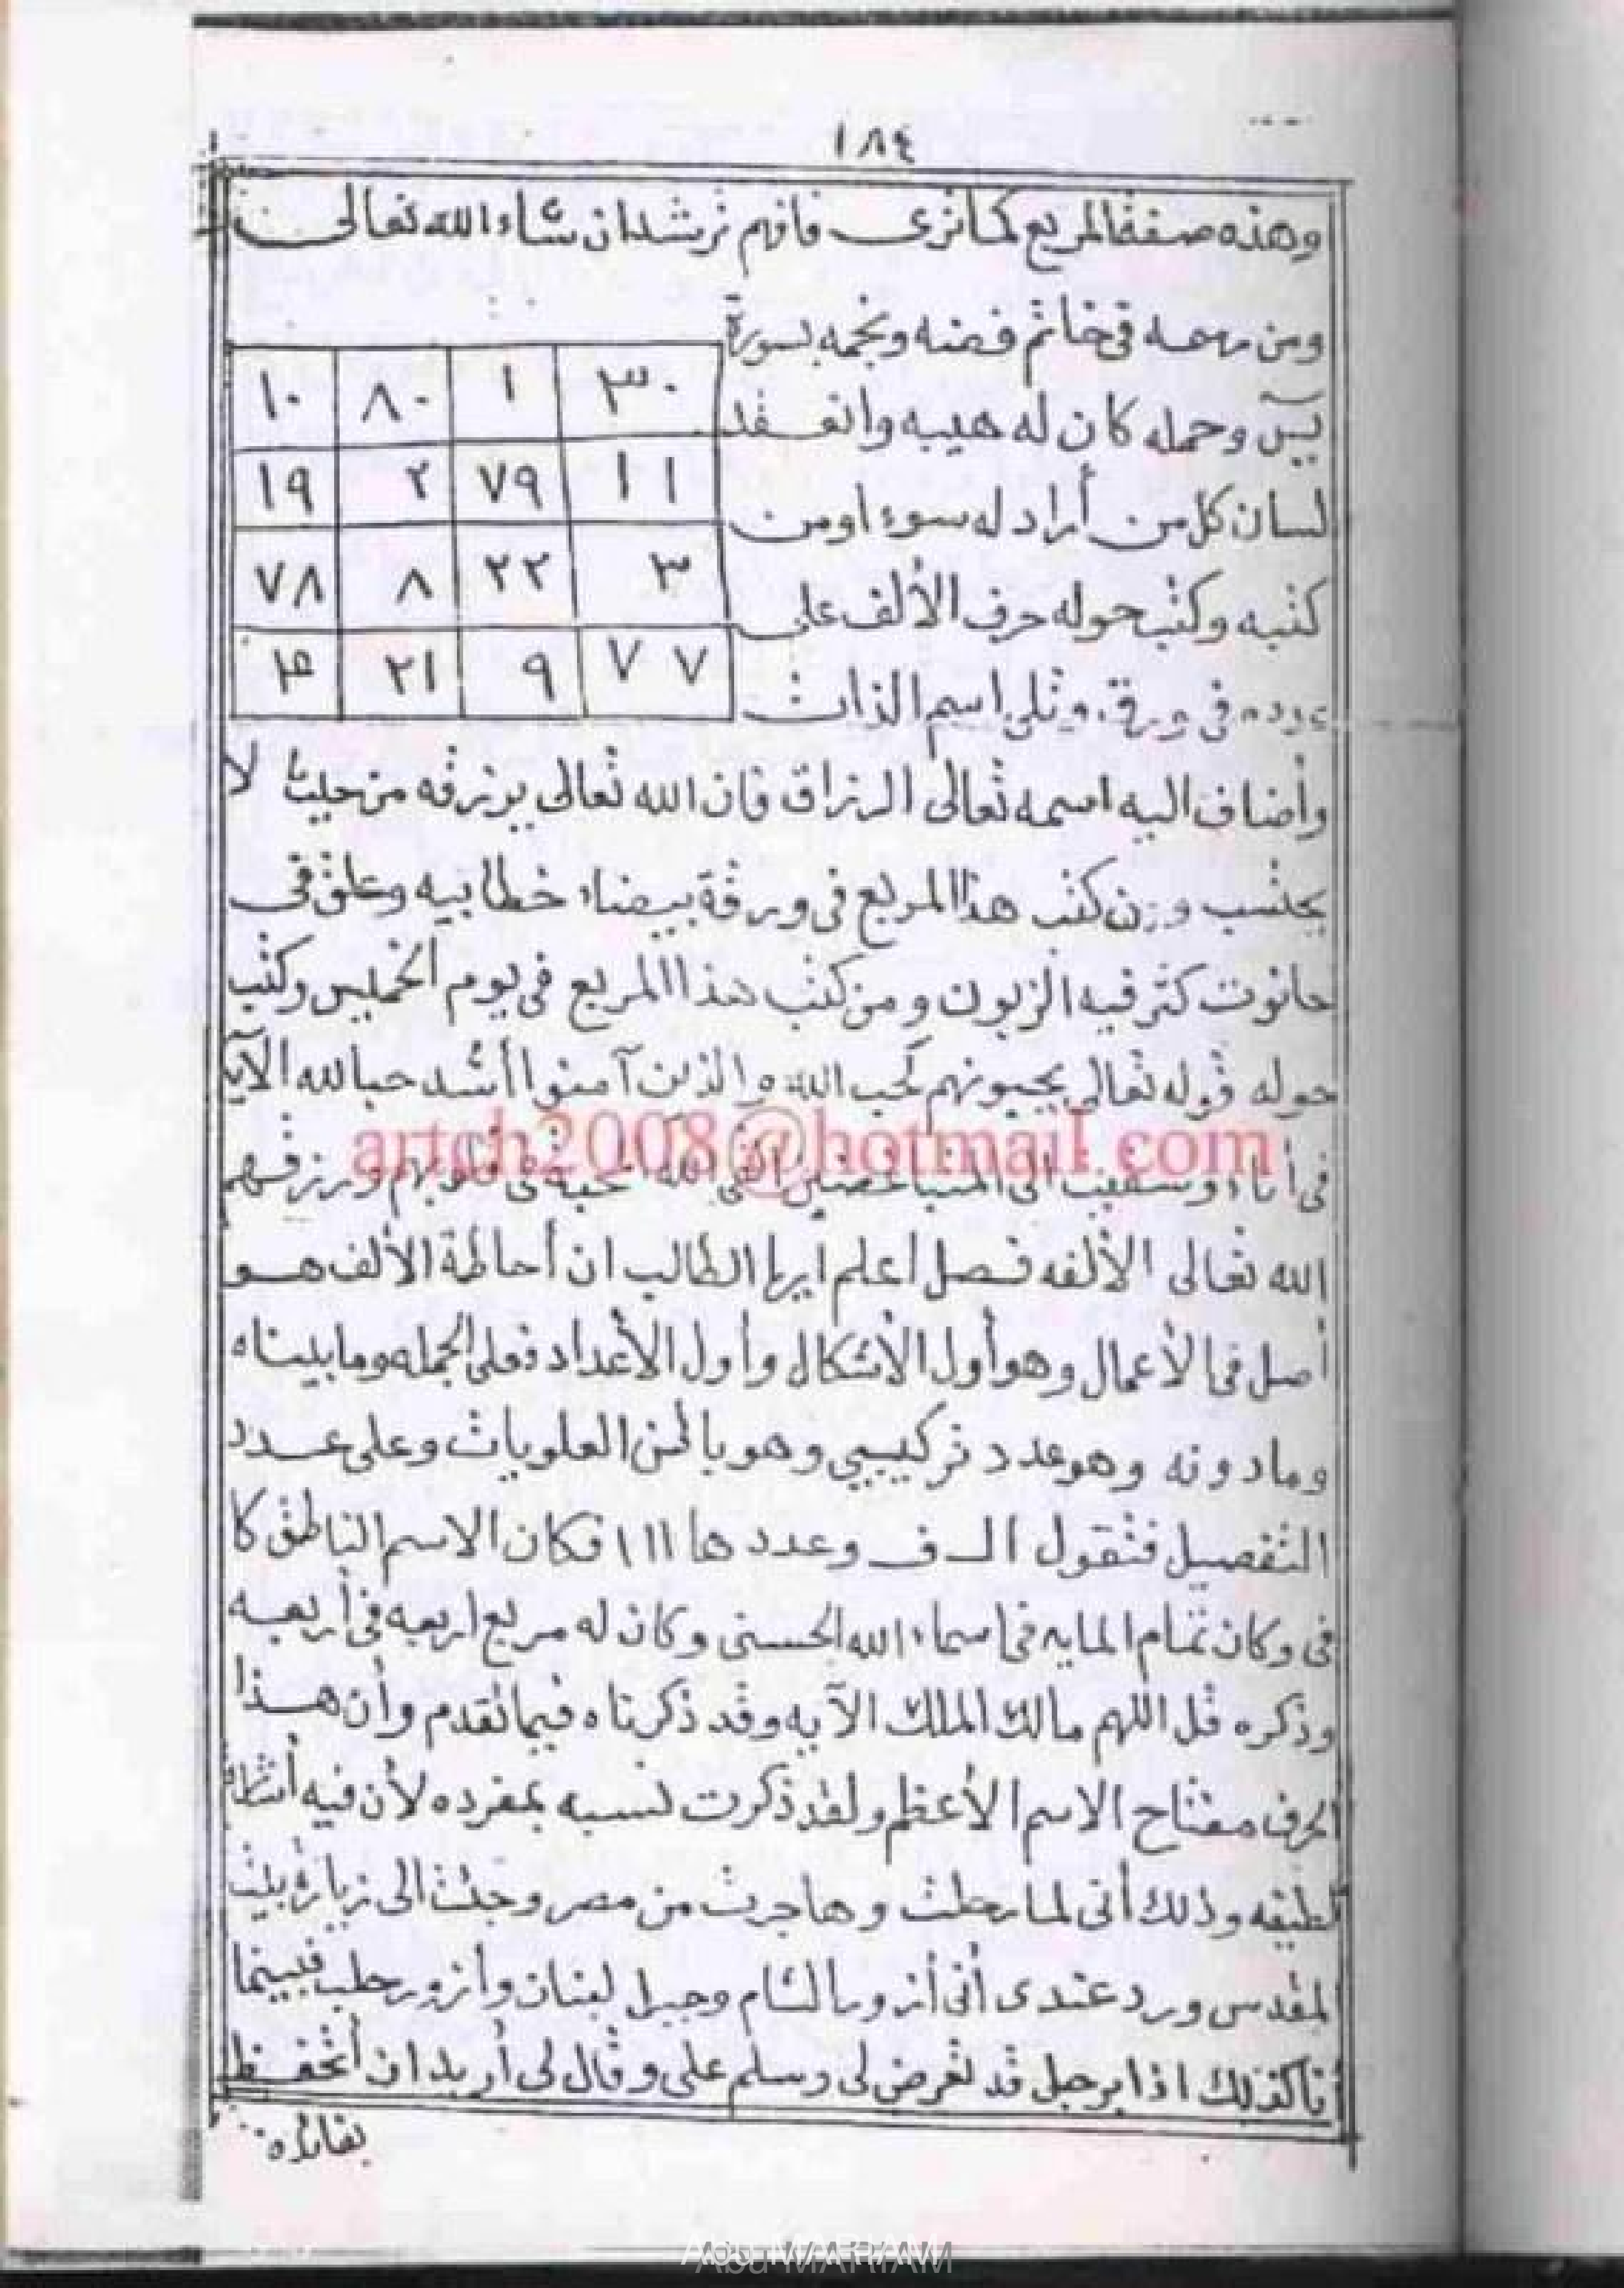 ١٨٤
وهذه صفة المربع كما ترى فافهم ترشد ان شاء الله تعالى
ومن رسمه في خاتم فضه ونجمه بسورة
٣٠ ١ ٨٠ ١٠
يس وحمله كان له هيبه وانعقد
١١ ٧٩ ٢ ١٩
لسان كل من أراد له سوء او من
٣ ٢٢ ٨ ٧٨
كتبه وكتب حوله حرف الألف على
٧٧ ٩ ٢١ ٤
عدده في ورقه وتلى اسم الذات
وأضاف اليه اسمه تعالى الرزاق فان الله تعالى يرزقه من حيث لا
يحتسب ومن كتب هذا المربع في ورقة بيضاء خطابيه وعلق في
حانوت كثر فيه الزبون ومن كتب هذا المربع في يوم الخميس وكتب
حوله قوله تعالى يحبونهم كحب الله والذين آمنوا أشد حبا لله الآية
في أناء وسقيت الى المتباغضين القى الله محبة في قلوبهم ورزقهم
artch2008@hotmail.com
الله تعالى الألفه فصل اعلم ايها الطالب ان أحاطة الألف هو
أصل في الأعمال وهو أول الأشكال وأول الأعداد فعلى الجمله وما بيناه
وما دونه وهو عدد تركيبي وهو بالمن العلويات وعلى عدد
التفصيل فتقول ا ل ف وعددها ١١١ فكان الاسم الناطق كا
في وكان تمام المايه في اسماء الله الحسنى وكان له مربع اربعه في أربعه
وذكره قل اللهم مالك الملك الآيه وقد ذكرناه فيما تقدم وأن هذا
الحرف مفتاح الاسم الأعظم ولقد ذكرت نسبه بمفرده لأن فيه
لطيفه وذلك أنى لما رحلت وهاجرت من مصر وجئت الى زيارة بيت
المقدس ورد عندى أنى أزور الشام وجبل لبنان وازور حلب فبينما
أنا كذلك اذا برجل قد تعرض لى وسلم على وقال لى أريد ان أتحفظ
بفائده
Abu MARIAM